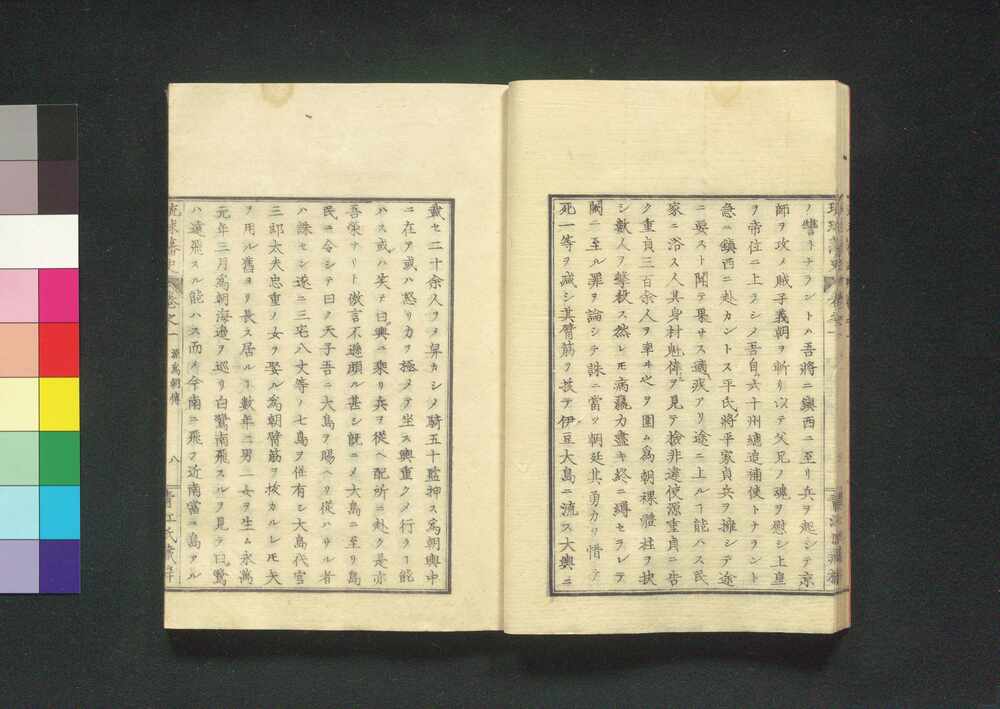 ノ讐トナラントハ吾將ニ鎭西ニ至リ兵ヲ起シテ京
師ヲ攻メ賊子義朝ヲ斬リ以テ父兄ノ魂ヲ慰シ上皇
ヲ帝位ニ上ラシメ吾自六十州總追補使トナラント
急ニ鎭西ニ赴カントス平氏將平家貞兵ヲ擁シテ途
ニ要スト聞テ果サス適疾アリ途ニ上ルヿ能ハス民
家ニ浴ス人其身材魁偉ヲ見テ檢非違使源重貞ニ告
ク重貞三百余人ヲ率ヰ之ヲ圍ム爲朝裸體柱ヲ抉
シ數人ヲ擊殺ス然レモ病羸力盡キ終ニ縛セラレテ
闕ニ至ル罪ヲ論シテ誅ニ當ツ朝廷其勇力ヲ惜テ
死一等ヲ减シ其臂筋ヲ拔テ伊豆大島ニ流ス大輿ニ
載セ二十余人ヲメ舁カシメ騎五十監押ス爲朝輿中
ニ在ヲ或ハ怒リ力ヲ極メテ坐ス輿重クメ行ヿ能
ハス或ハ笑テ曰輿ニ乘リ兵ヲ從ヘ配所ニ赴ク是亦
吾榮ナリト傲言不遜頗ル甚シ既ニメ大島ニ至リ島
民ニ令シテ曰ク天子吾ニ大島ヲ賜ヘリ從ハサル者
ハ誅セン遂ニ三宅八丈等ノ七島ヲ併有シ大島代官
三郎太夫忠重ノ女ヲ娶ル爲朝臂筋ヲ拔カルレモ矢
ヲ用ル舊ヨリ長ス居ルヿ數年二男一女ヲ生ム永萬
元年三月爲朝海邊ヲ巡リ白鷺南飛スルヲ見テ曰鷺
ハ遠飛スル能ハス而メ今南ニ飛フ近南當ニ島アル
琉球藩史
卷之一
源爲朝傳
八